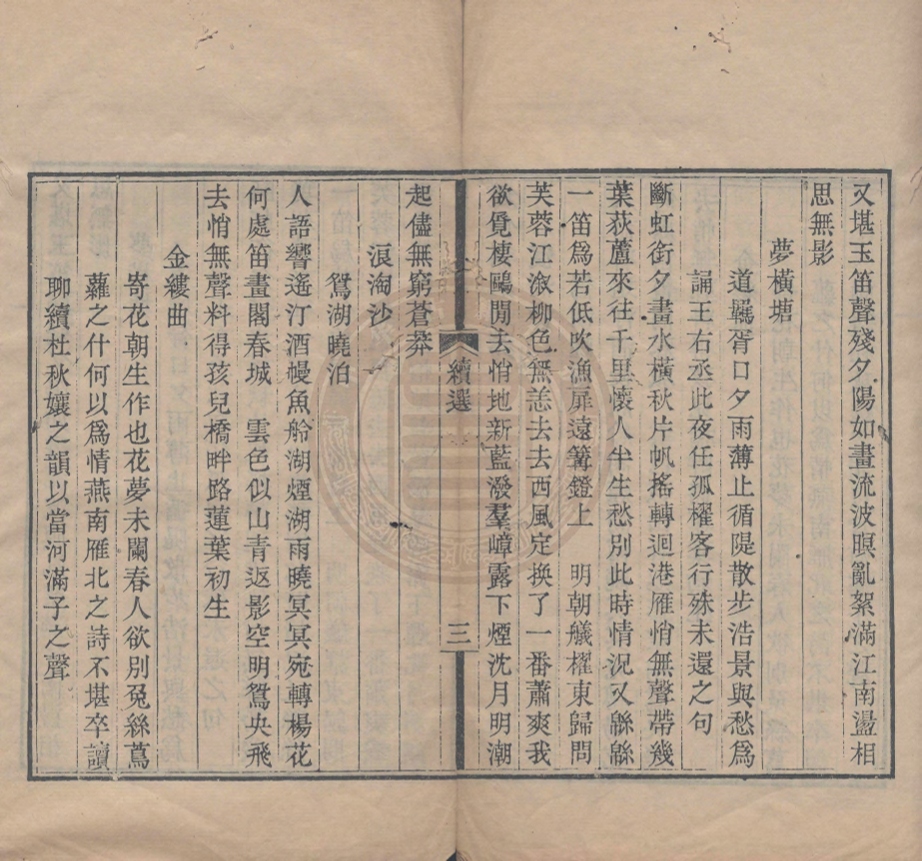 又堪玉笛聲殘夕陽如畫流波暝亂絮滿江南盪相
思無影
夢橫塘
道羈胥口夕雨薄止循隄散步浩景與愁爲
誦王右丞此夜任孤櫂客行殊未還之句
斷虹銜夕畫水橫秋片帆搖轉迴港雁悄無聲帶幾
葉荻蘆來往千里懷人半生愁別此時情況又緜緜
一笛爲若低吹漁扉遠篝鐙上　明朝艤櫂東歸問
芙蓉江溆柳色無恙去去西風定換了一番蕭爽我
欲覓棲鷗閒去悄地新藍潑羣嶂露下煙沈月明潮
續選
三
起儘無窮蒼莽
浪淘沙
鴛湖曉泊
人語響遙汀酒幔魚舲湖煙湖雨曉冥冥宛轉楊花
何處笛畫閣春城　雲色似山青返影空明鴛央飛
去悄無聲料得孩兒橋畔路蓮葉初生
金縷曲
寄花朝生作也花夢未闌春人欲別兔絲蔦
蘿之什何以爲情燕南雁北之詩不堪卒讀
聊續杜秋孃之韻以當河滿子之聲